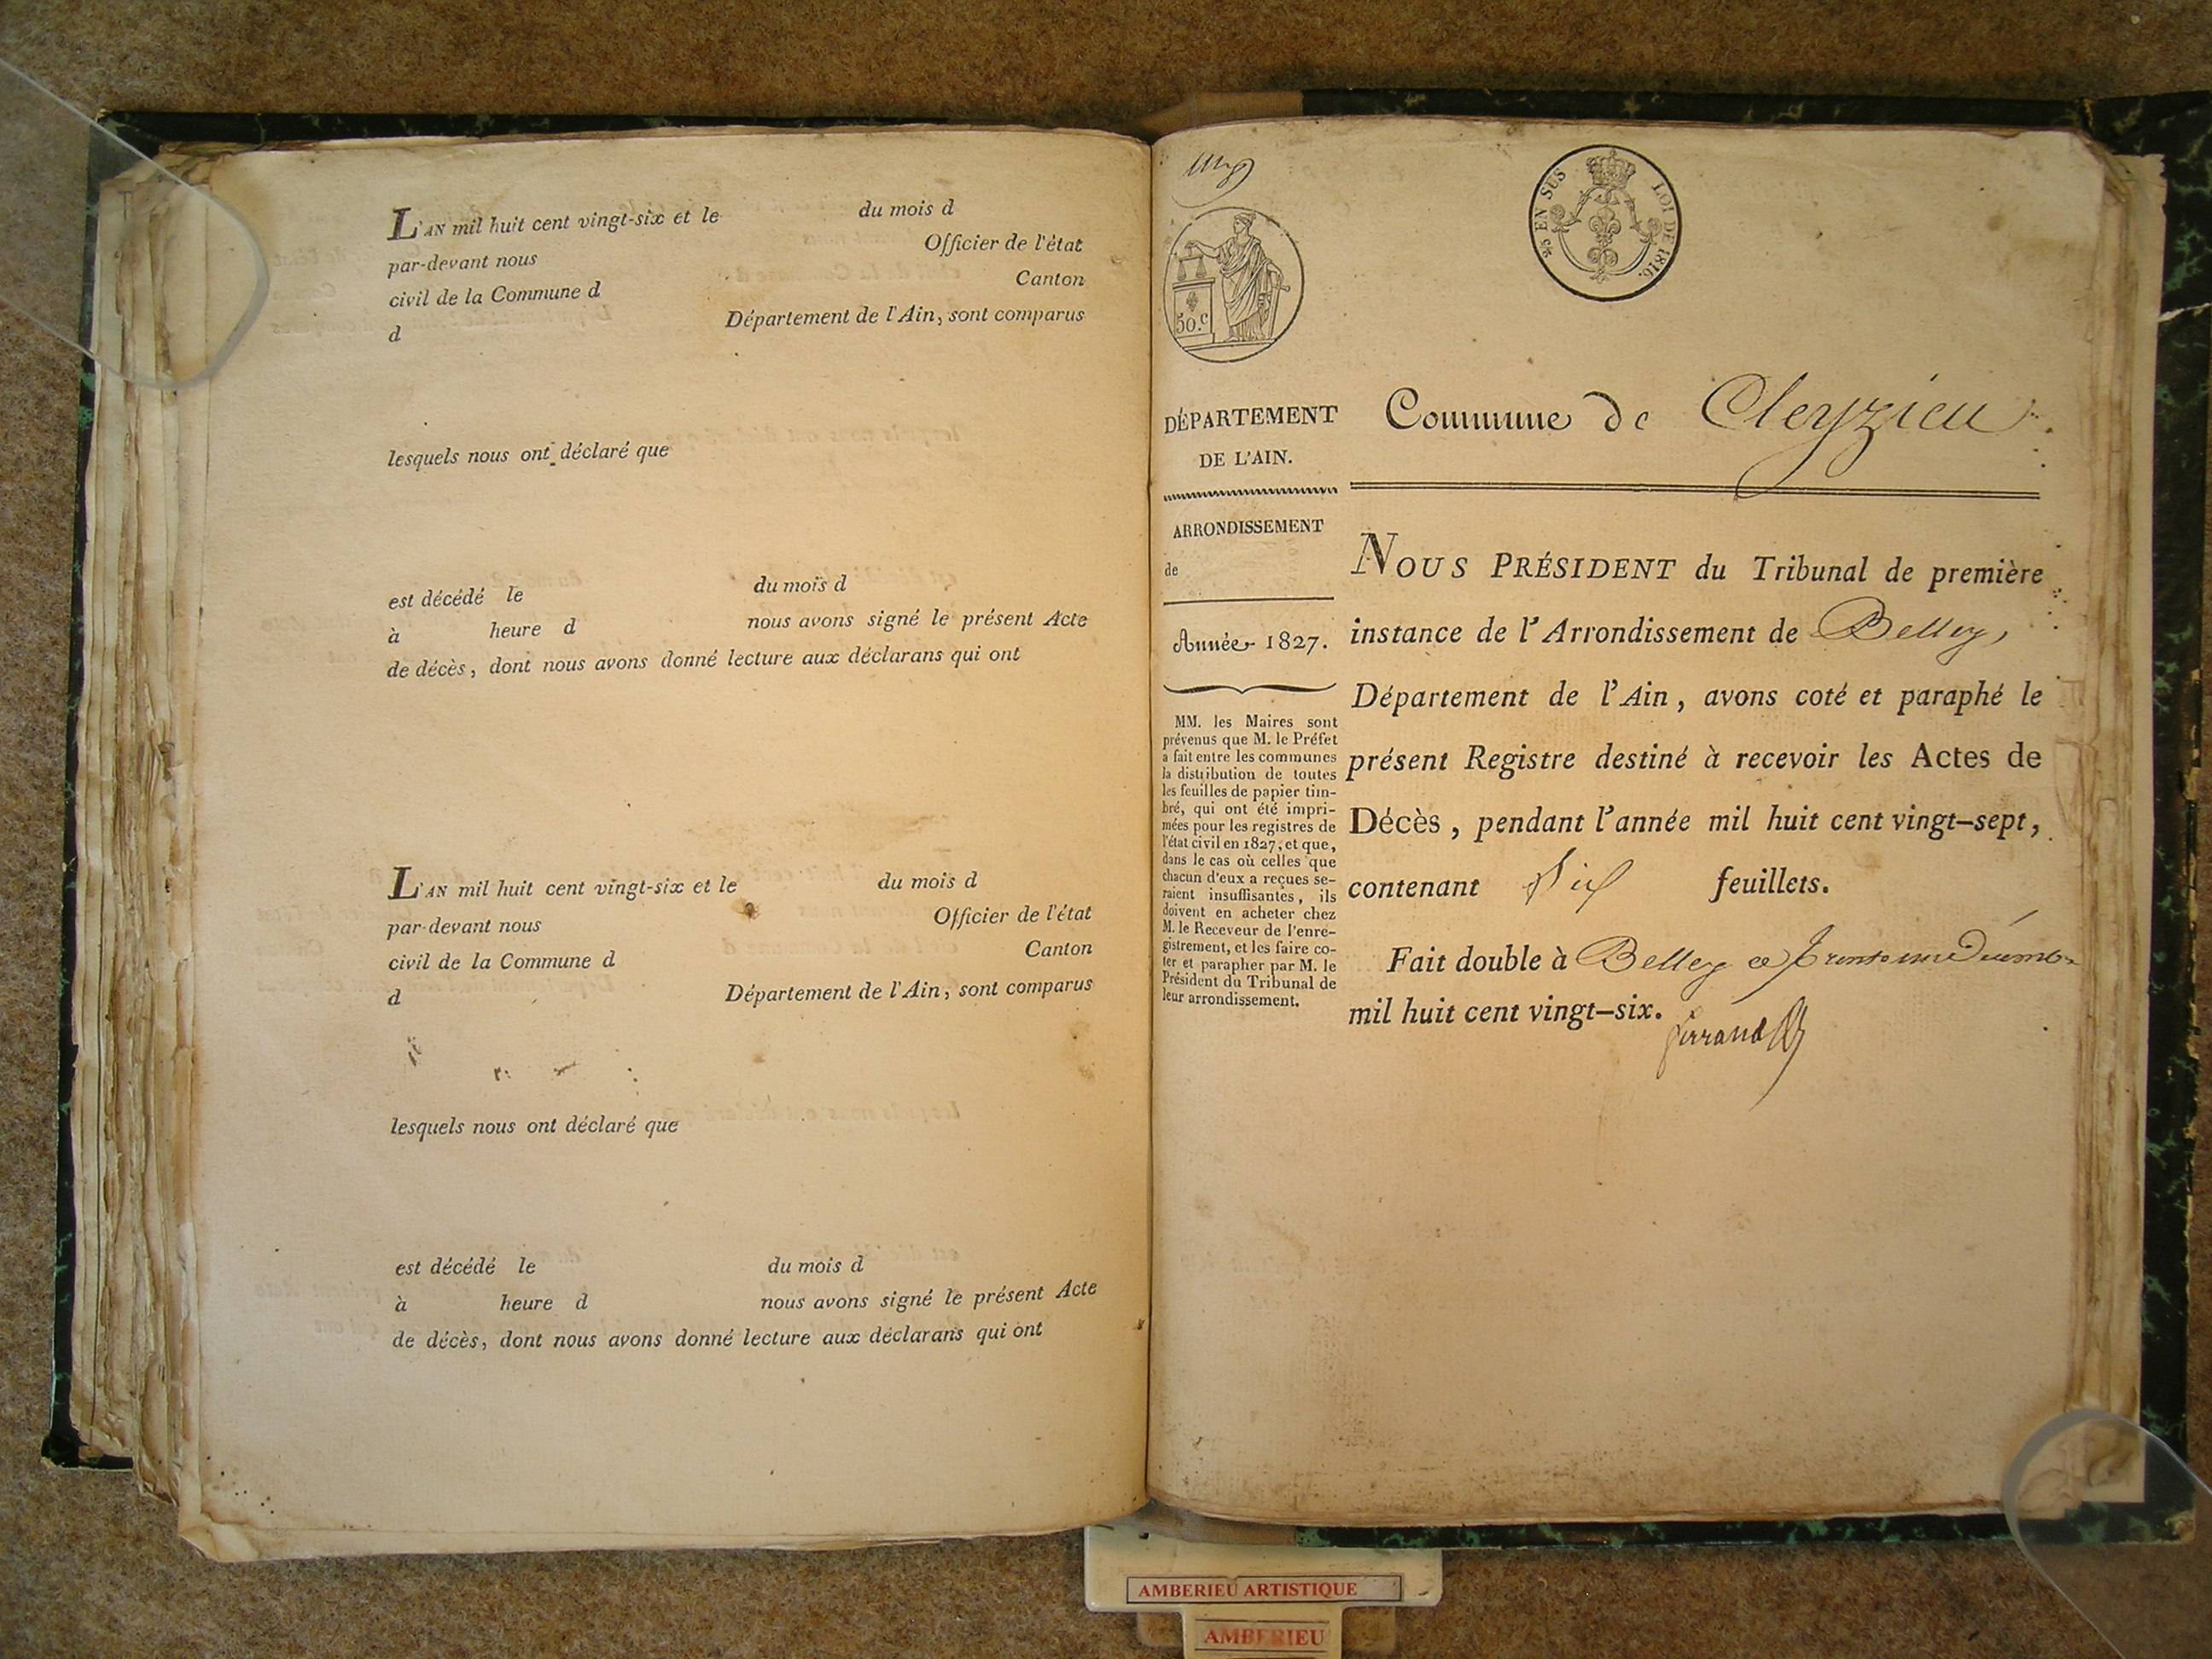 L'AN mil huit cent vingt-six et le du mois d
par-devant nous Officier de l'état
civil de la Commune d Canton
d Département de l'Ain, sont comparus
lesquels nous ont déclaré que
est décédé le du mois d
à heure d nous avons signé le présent Acte
de décès, dont nous avons donné lecture aux déclarans qui ont
L'AN mil huit cent vingt-six et le du mois d
par-devant nous Officier de l'état
civil de la Commune d Canton
d Département de l'Ain, sont comparus
lesquels nous ont déclaré que
est décédé le du mois d
à heure d nous avons signé le présent Acte
de décès, dont nous avons donné lecture aux déclarans qui ont
EN SUS LOI DE 1816.
50.c
DÉPARTEMENT
DE L'AIN.
ARRONDISSEMENT
de
Année 1827.
MM. les Maires sont
prévenus que M. le Préfet
a fait entre les communes
la distribution de toutes
les feuilles de papier tim-
bré, qui ont été impri-
mées pour les registres de
l'état civil en 1827, et que,
dans le cas où celles que
chacun d'eux a reçues se-
raient insuffisantes, ils
doivent en acheter chez
M. le Receveur de l'enre-
gistrement, et les faire co-
ter et parapher par M. le
Président du Tribunal de
leur arrondissement.
Commune de Cleyzieu
NOUS PRÉSIDENT du Tribunal de première
instance de l'Arrondissement de Belley,
Département de l'Ain, avons coté et paraphé le
présent Registre destiné à recevoir les Actes de
Décès, pendant l'année mil huit cent vingt-sept,
contenant six feuillets.
Fait double à Belley ce trente un Décembre
mil huit cent vingt-six.
AMBERIEU ARTISTIQUE
AMBERIEU